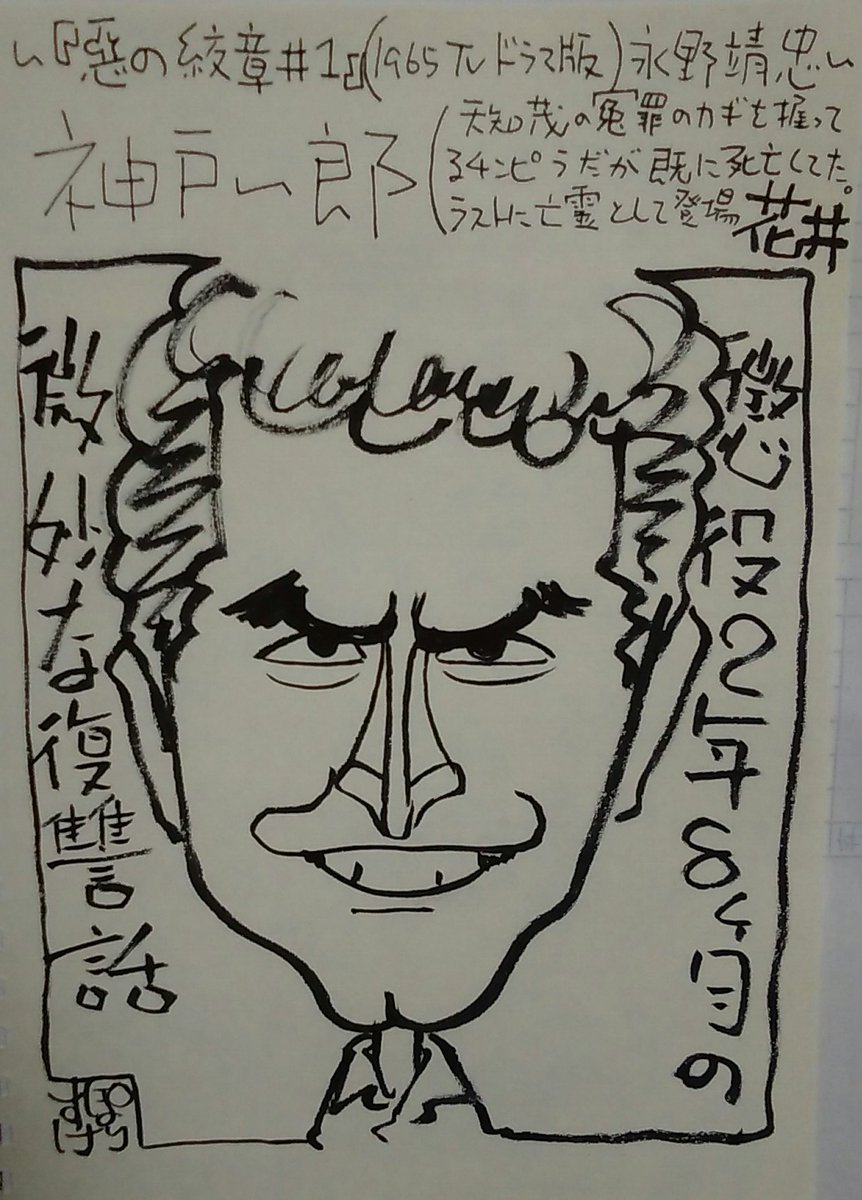 い『惡の紋章#1』(1965TVドラマ版)永野靖忠い
神戸い郎(天知茂の冤罪のカギを握って
るチンピラだが既に死亡してた。
ラストに亡霊として登場
花井
懲役2年8ヶ月の
微妙な復讐話